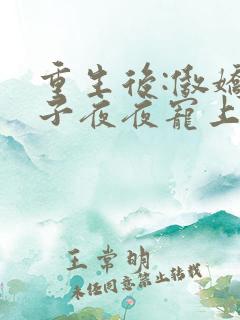 重生后:傲娇
子夜夜宠上
王常明
未经同意禁止转载